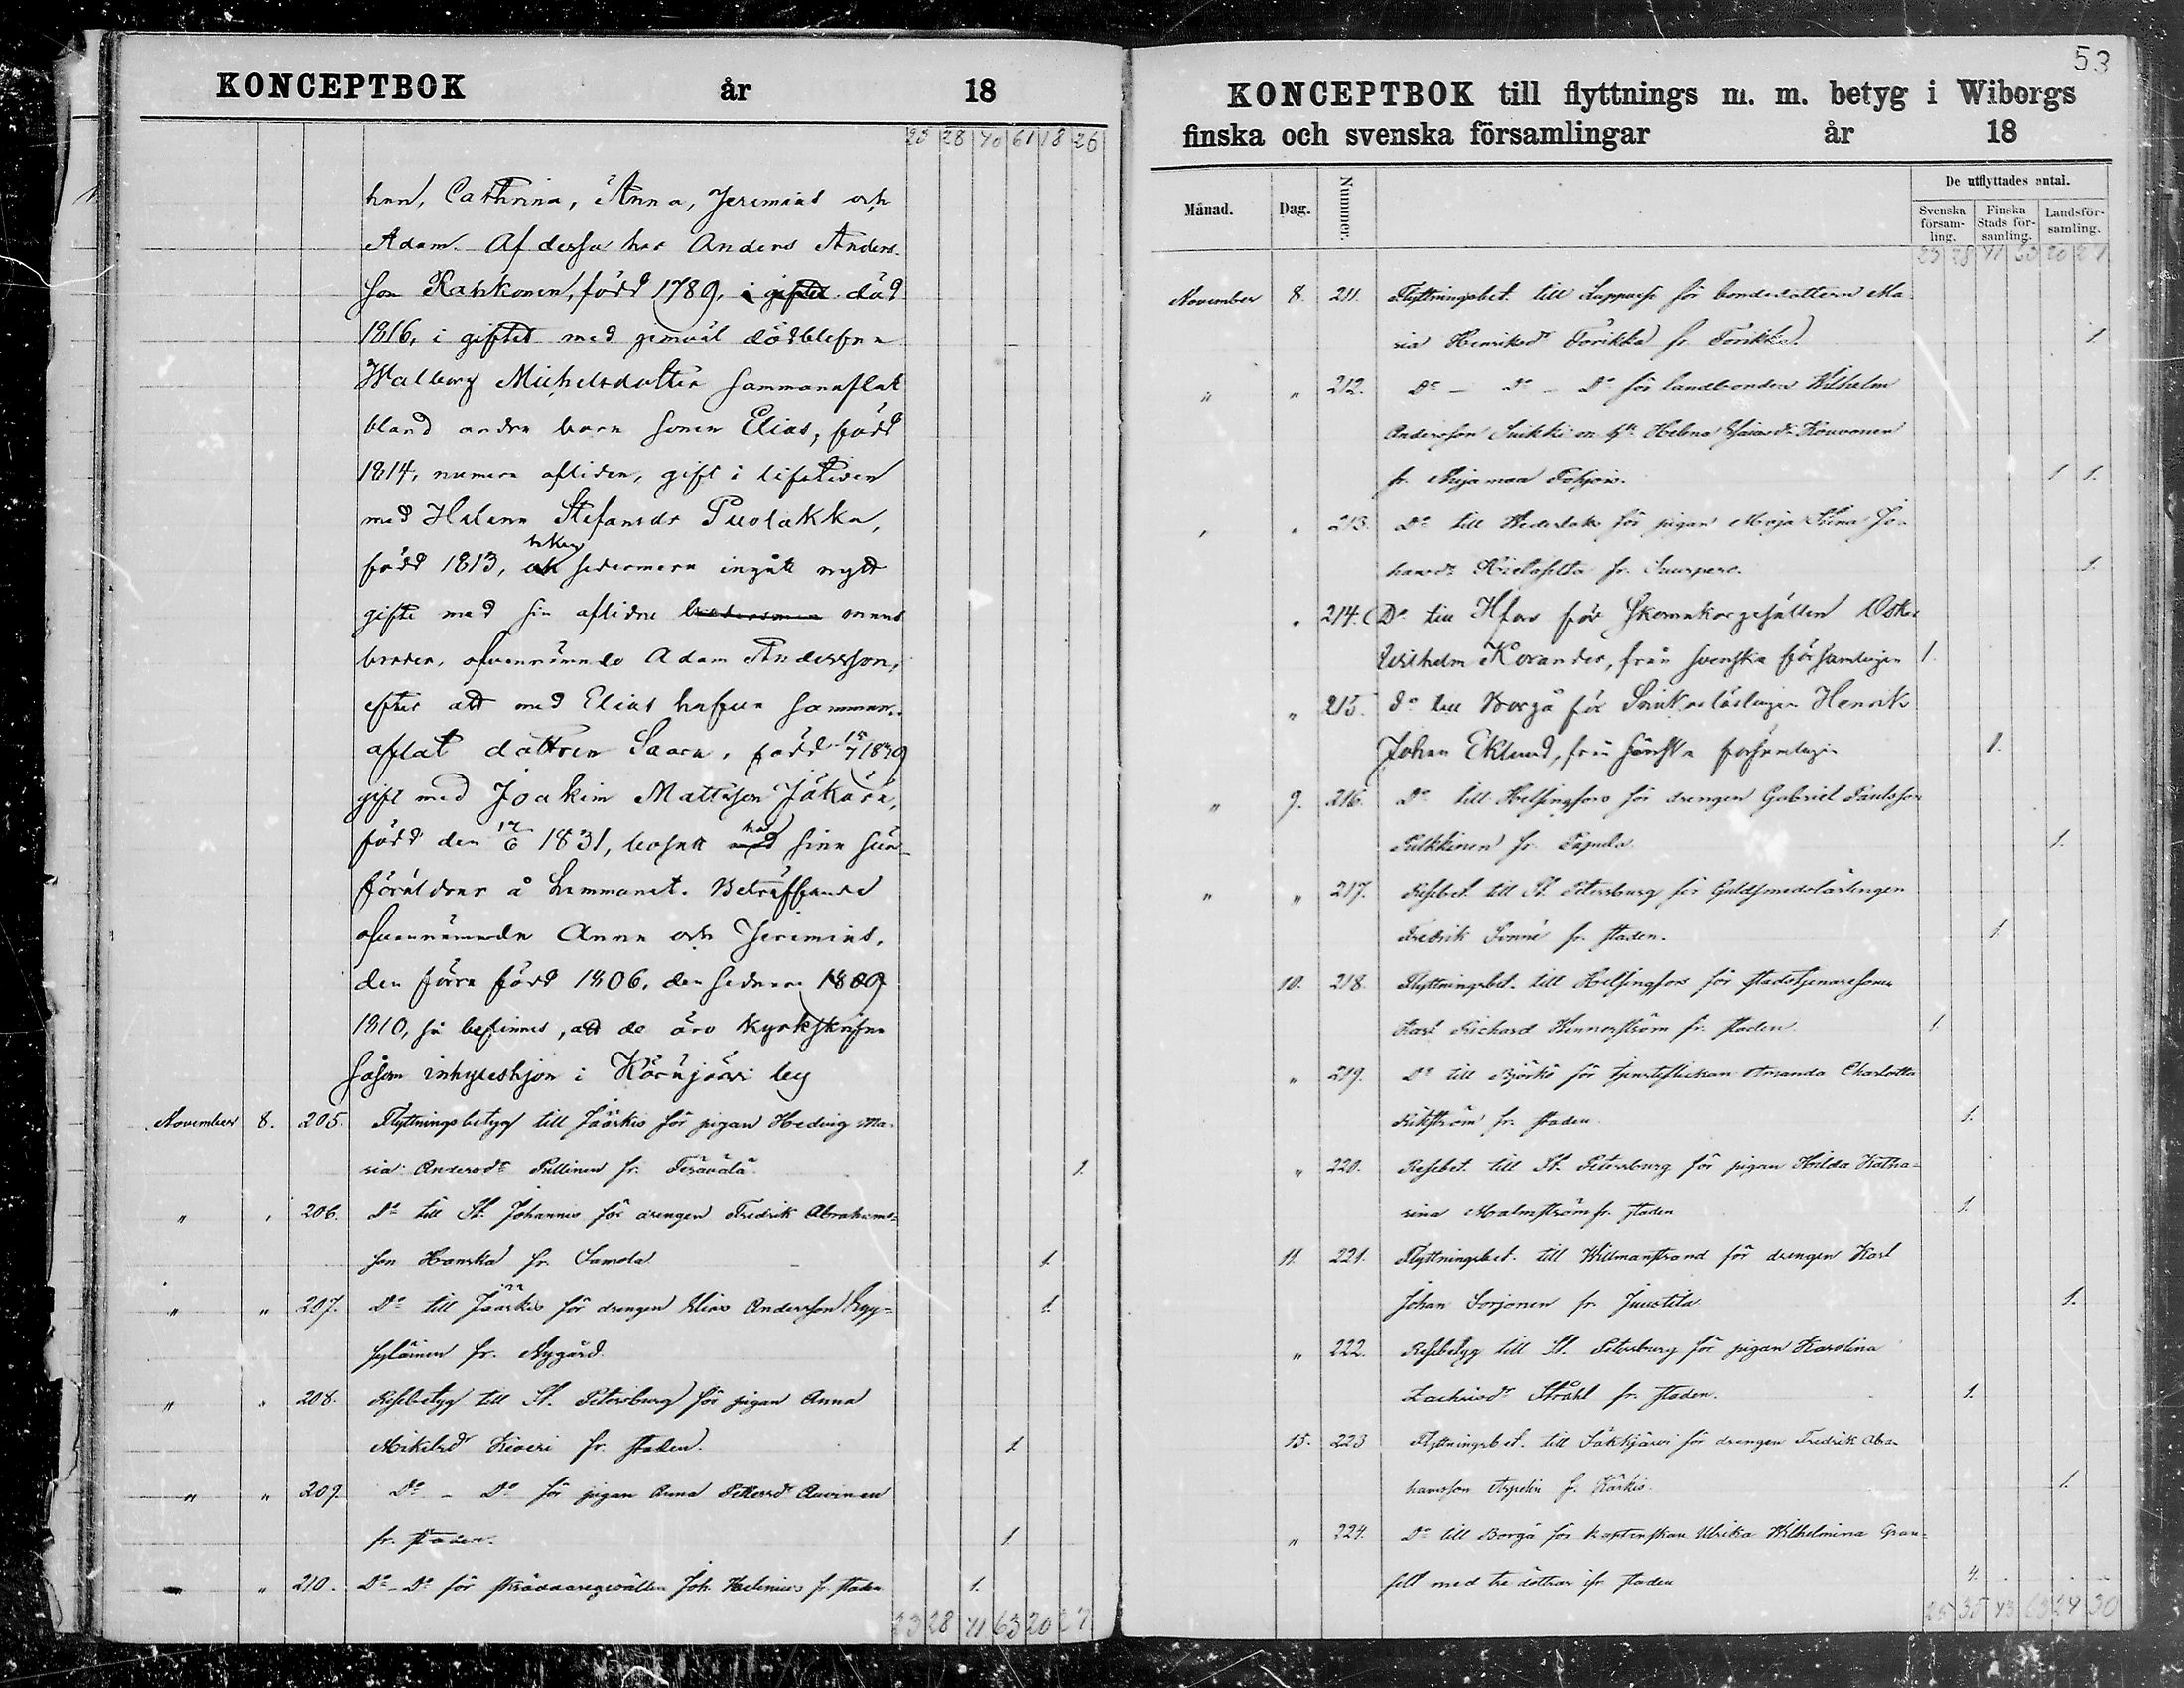 KONCEPTBOK år 18
23 28 40 61 18 26
hen, Cathrina, Anna, Jeremias och
Adam. Af dessa har Anders Anders-
son Kahkonen, född 1789, i giftet död
1816, i giftet med jemväl dödblefna
Walborg Michelsdotter sammanaflat
bland andra barn sonen Elias, född
1814, numera afliden, gift i lifstiden
med Helena Stefansdr Puolakka,
född 1813, sedermera ingått nytt
gifte med sin aflidne mans
broder, ofvannämnde Adam Andersson,
efter att med Elias hafva samman-
aflat dottren Saara, född 15/7 1839
gift med Joakim Mattsson Jäkärä,
född den 17/6 1831, bosatt hos sina svär-
föräldrar å hemmanet. Beträffande
ofvannämnda Anna och Jeremias,
den förra född 1806, den sednare 1809
1810, så befinnes, att de äro kyrkskrifna
såsom inhyseshjon i Kärnjärvi by
November 8. 205. Flyttningsbetyg till Jääskis för pigan Hedvig Ma-
ria Andersdr Pullinen fr. Terävälä 1.
" " 206. Do till St. Johannis för drengen Fredrik Abrahams-
son Hanska fr. Samola 1.
" " 207. Do till Jääskis för drengen Elias Andersson Kyy-
syläinen fr. Nygård. 1.
" " 208. Resebetyg till St. Petersburg för pigan Anna
Mikelsdr Kiveri fr. staden. 1
" " 209. Do - Do för pigan Anna Pettersdr Auvinen
fr. staden. 1.
" 210. Do - Do för skräddaregesällen Joh. Helenius fr. staden 1.
23 28 41 63 20 27
53
KONCEPTBOK till flyttnings m. m. betyg i Wiborgs
finska och svenska församlingar år 18
Månad. Dag. Nummer. De utflyttades antal.
Svenska församling. Finska Stads församling. Landsförsamling.
23 28 41 63 20 27
November 8. 211. Flyttningsbet. till Lappvesi för bondedottern Ma-
ria Henriksdr Torikka fr. Torikka. 1.
" " 212. Do - Do - Do för landbonden Wilhelm
Andersson Suikki o. h. Helena Esaiasdr Kouvonen
fr. Nuijamaa Pohjois. 1 1.
" " 213. Do till Wederlaks för pigan Maja Stina Jo-
hansdr Kielosilta fr. Suurpere. 1.
" 214. Do till Hfors för Skomakaregesällen Oskar
Wilhelm Korander, från svenska församlingen 1.
" 215. do till Borgå för Snickarelärlingen Henrik
Johan Eklund, från församlingen 1.
" 9. 216. Do till Helsingfors för drengen Gabriel Paulsson
Pulkkinen fr. Papula. 1.
" " 217. Resebet. till St. Petersburg för Guldsmedslärlingen
Fredrik fr. staden. 1.
10. 218. Flyttningsbet. till Helsingfors för stadstjenaresonen
Karl Richard Wennerström fr. staden. 1.
" 219. Do till Björkö för tjensteflickan Amanda Charlotta
Rikström fr. staden. 1.
" 220. Resebet. till St. Petersburg för pigan Hilda Katha-
rina Malmström fr. staden 1.
11. 221. Flyttningsbet. till Willmanstrand för drengen Karl
Johan Sorjonen fr. Juustila 1.
" 222. Resebetyg till St. Petersburg för pigan Karolina
Zachrisdr Ståhl fr. staden. 1.
15. 223 Flyttningsbet. till Säkkjärvi för drengen Fredrik Abra-
hamsson fr. Kärkis. 1.
" 224. Do till Borgå för kaptenskan Ulrika Wilhelmina Gran-
felt med tre döttrar fr. staden 4.
25 35 43 63 24 30